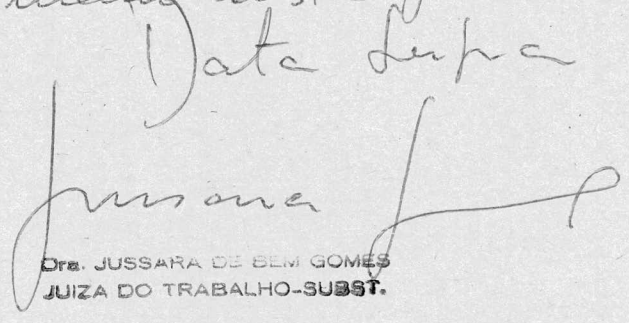 Data Supra
Jussara
Dra. JUSSARA DE BEM GOMES
JUIZA DO TRABALHO-SUBST.